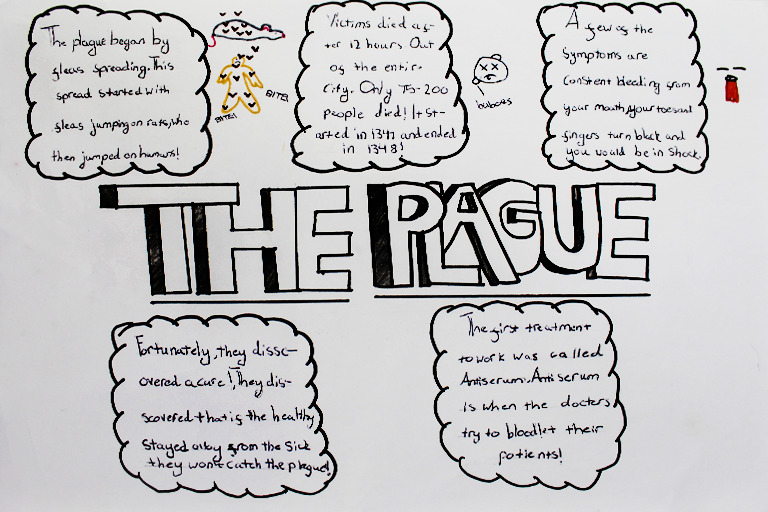 The plague began by
fleas spreading. This
spread started with
fleas jumping on rats, who
then jumped on humans!
BITE!
BITE!
Victims died af-
ter 12 hours. Out
of the entire
city. Only 75-200
people died! It st-
arted in 1347 and ended
in 1348!
buboes
A few of the
symptoms are
constent bleeding from
your mouth, your toes and
fingers turn black and
you would be in shock.
THE PLAGUE
Fortunately, they disc-
overed a cure! They dis-
scovered that if the healthy
stayed away from the sick
they won't catch the plague!
The first treatment
to work was called
Antiserum. Antiserum
is when the docters
try to bloodlet their
patients!